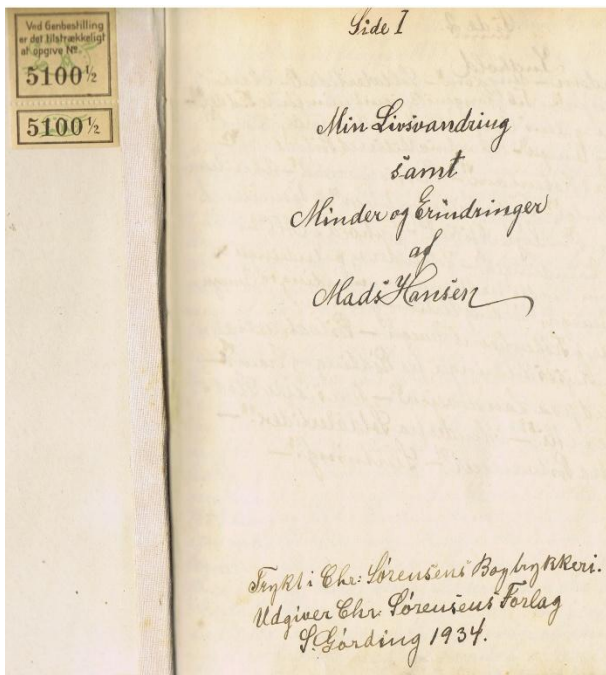 Ved Genbestilling
er det tilstrækkeligt
at opgive Nr.
5100½
5100½
Side I
Min Livsvandring
samt
Minder og Erindringer
af
Mads Hansen
Trykt i Chr: Sørensens Bogtrykkeri.
Udgiver Chr. Sørensens Forlag
S. Gørding 1934.